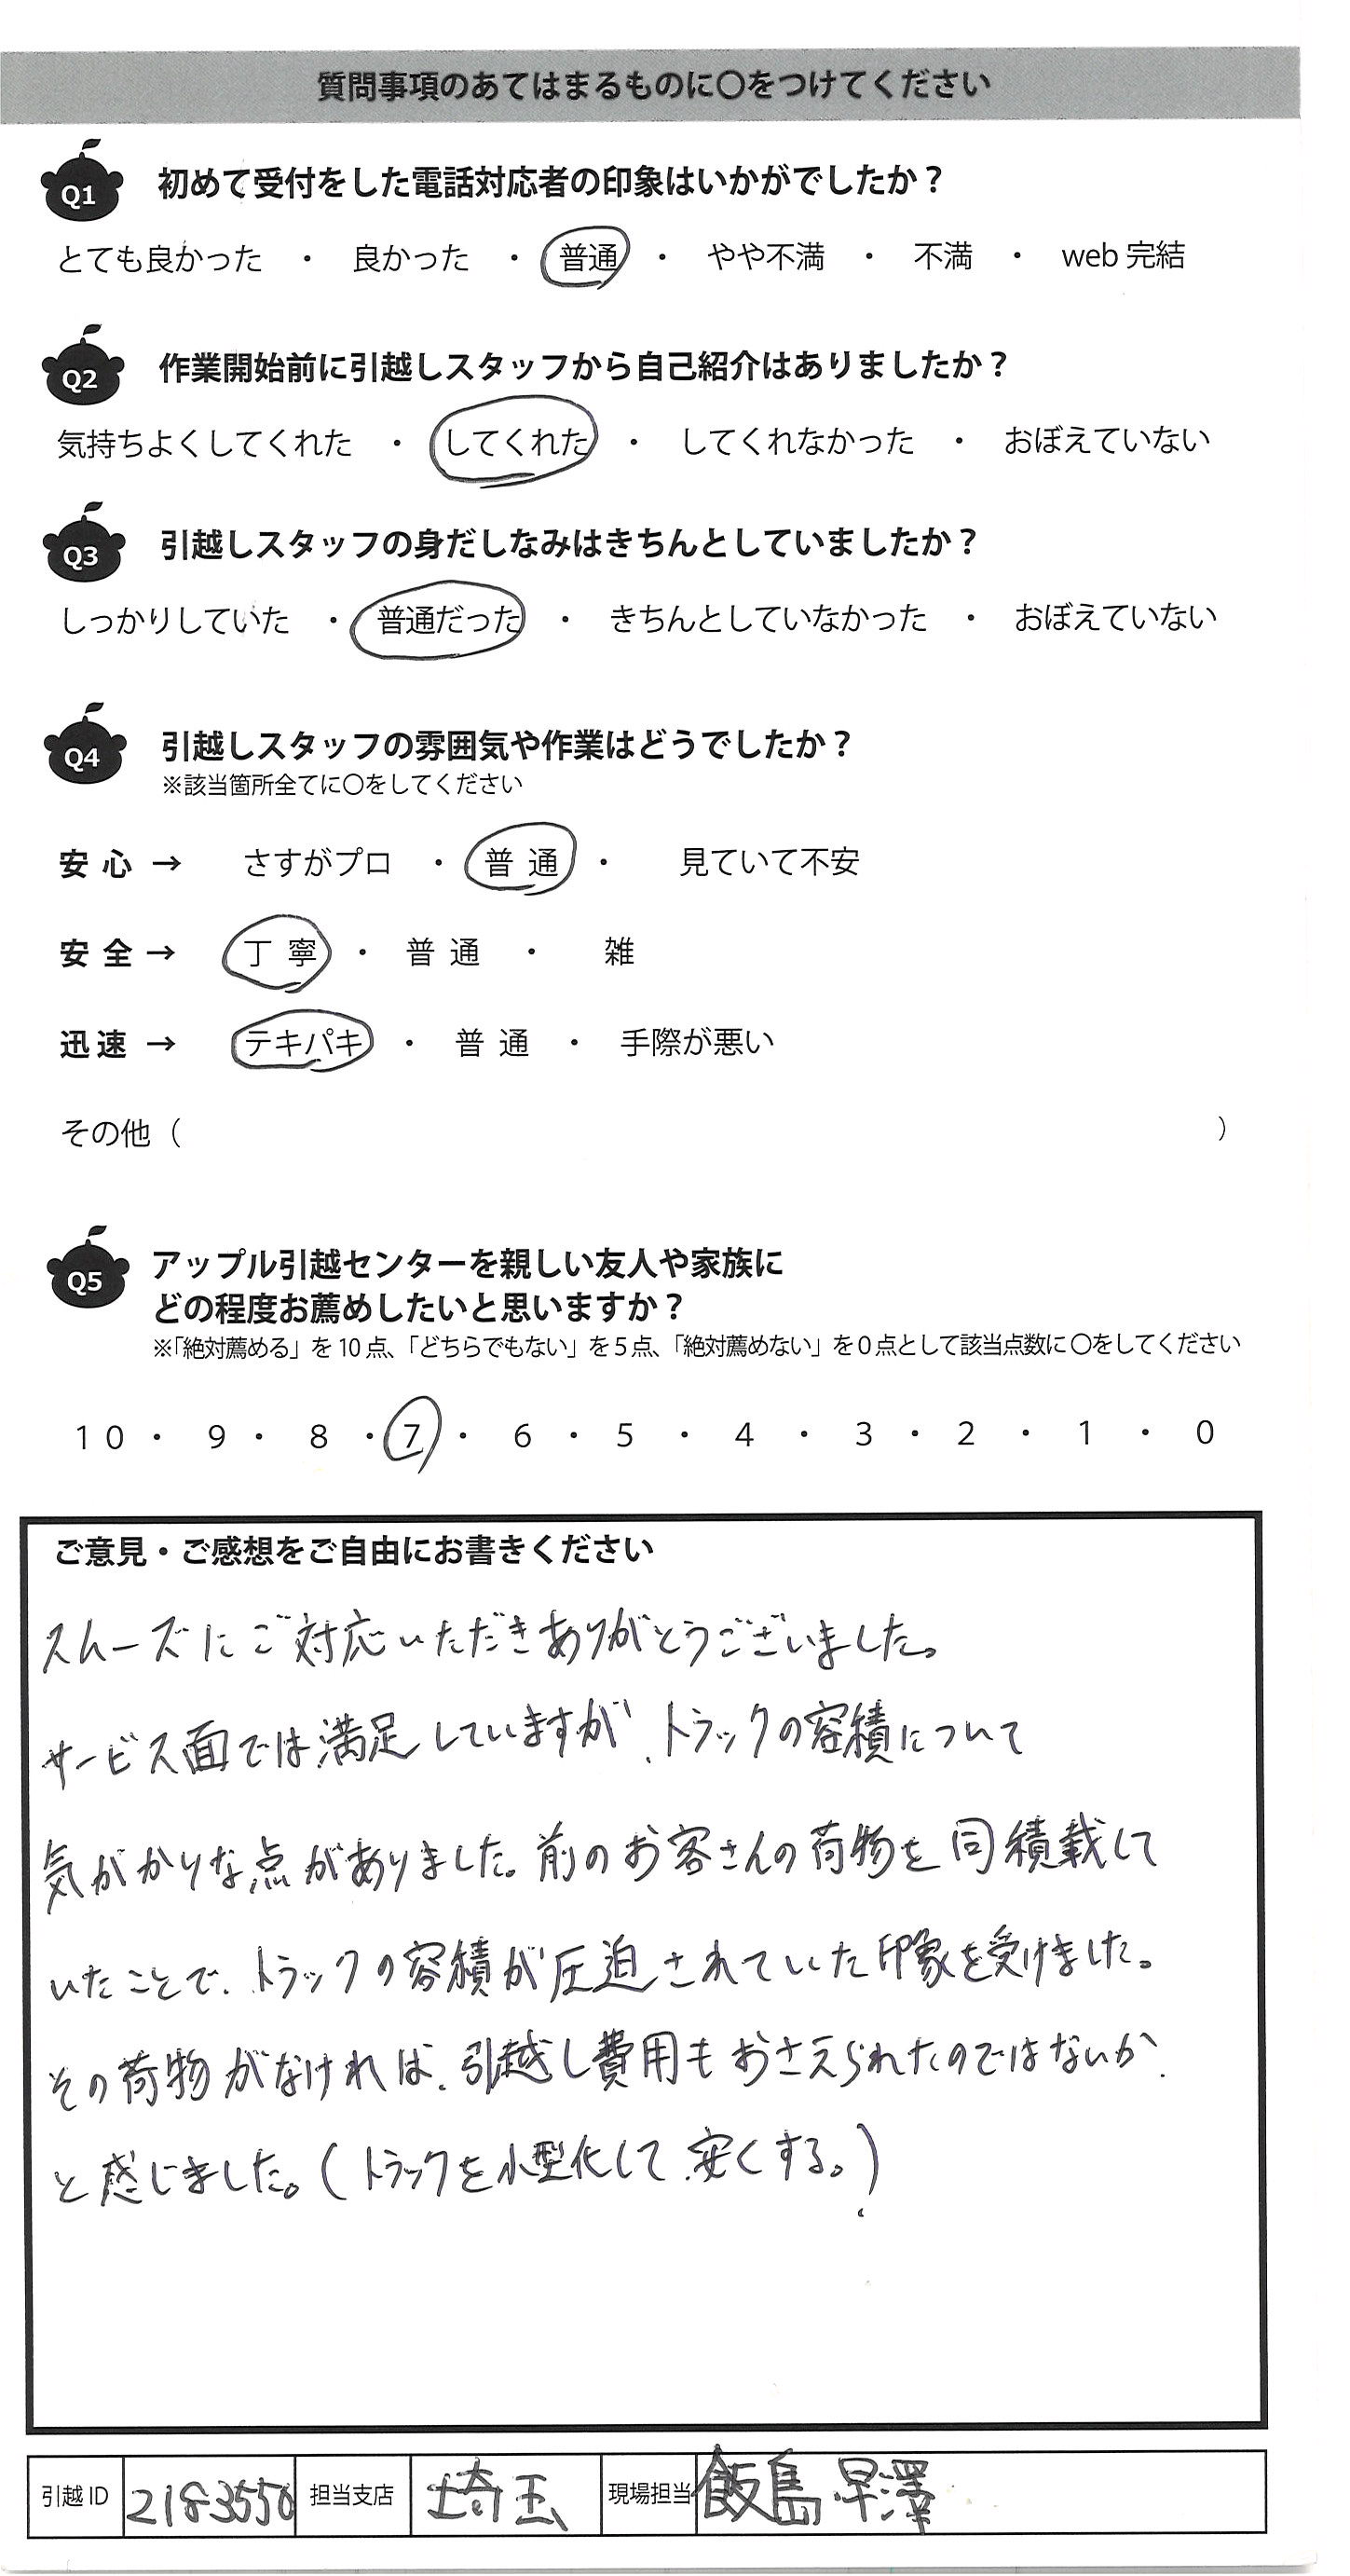 質問事項のあてはまるものに〇をつけてください
Q1 初めて受付をした電話対応者の印象はいかがでしたか？
とても良かった ・ 良かった ・ 普通 ・ やや不満 ・ 不満 ・ web 完結
Q2 作業開始前に引越しスタッフから自己紹介はありましたか？
気持ちよくしてくれた ・ してくれた ・ してくれなかった ・ おぼえていない
Q3 引越しスタッフの身だしなみはきちんとしていましたか？
しっかりしていた ・ 普通だった ・ きちんとしていなかった ・ おぼえていない
Q4 引越しスタッフの雰囲気や作業はどうでしたか？
※該当箇所全てに〇をしてください
安心 → さすがプロ ・ 普通 ・ 見ていて不安
安全 → 丁寧 ・ 普通 ・ 雑
迅速 → テキパキ ・ 普通 ・ 手際が悪い
その他（ ）
Q5 アップル引越センターを親しい友人や家族に
どの程度お薦めしたいと思いますか？
※「絶対薦める」を10点、「どちらでもない」を5点、「絶対薦めない」を0点として該当点数に〇をしてください
10 ・ 9 ・ 8 ・ 7 ・ 6 ・ 5 ・ 4 ・ 3 ・ 2 ・ 1 ・ 0
ご意見・ご感想をご自由にお書きください
スムーズにご対応いただきありがとうございました。
サービス面では満足していますが、トラックの容積について
気がかりな点がありました。前のお客さんの荷物を同積載して
いたことで、トラックの容積が圧迫されていた印象を受けました。
その荷物がなければ、引越し費用もおさえられたのではないか、
と感じました。（トラックを小型化して、安くする。）
引越ID 2183550 担当支店 埼玉 現場担当 飯島 早澤